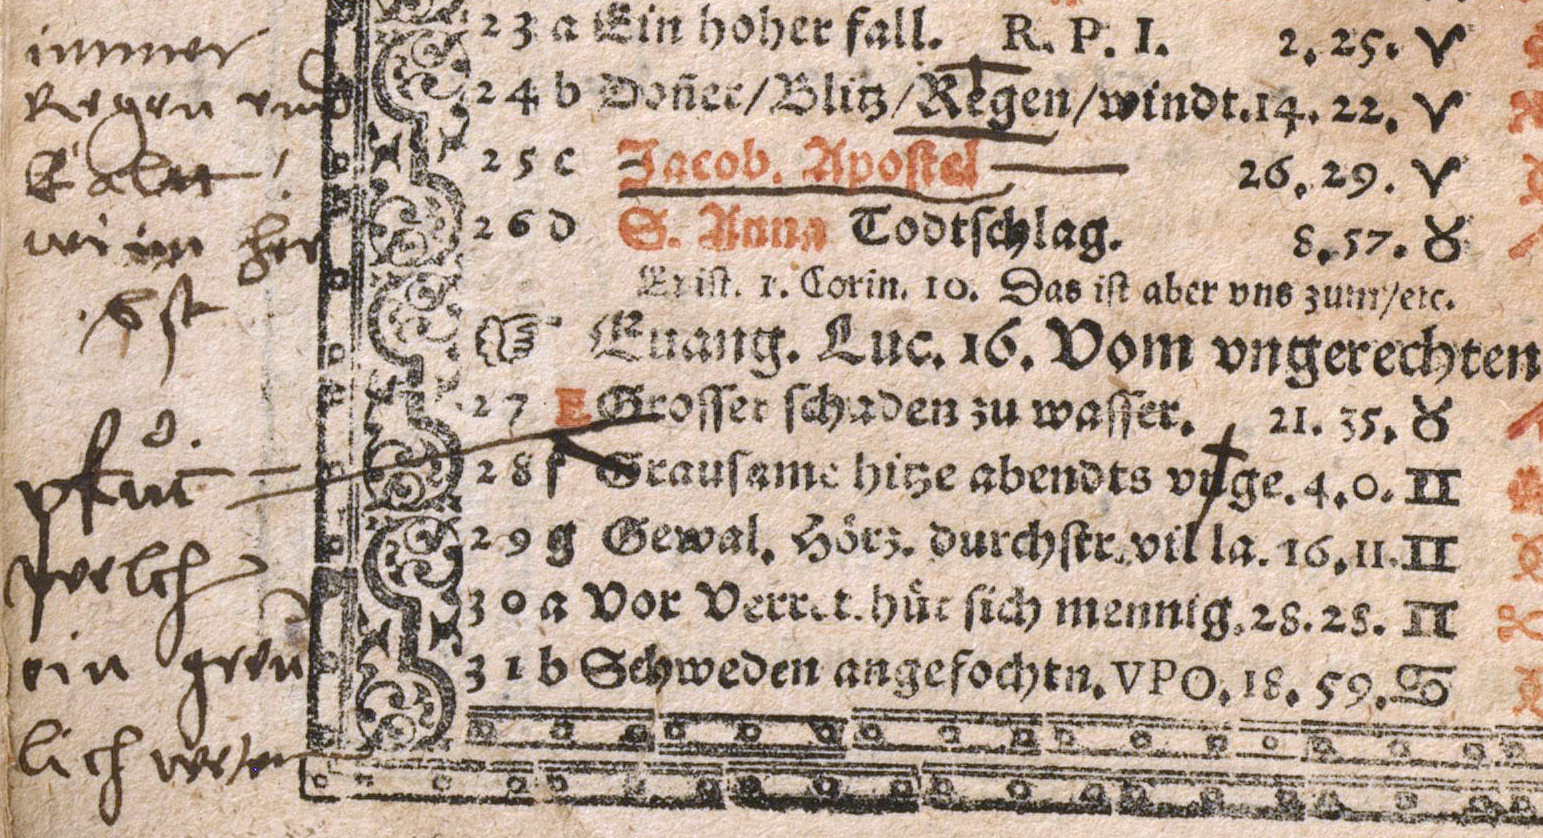 immer
Regen vnd
Kalt
wi im her
bst
23 a Ein hoher fall. R. P. I. 2. 25. ♈
24 b Doñer/Blitz/Regen/windt. 14. 22. ♈
25 c Jacob. Apostel 26. 29. ♈
26 d S. Anna Todtschlag. 8. 57. ♉
Epist. 1. Corin. 10. Das ist aber vns zum/etc.
☞ Euang. Luc. 16. Vom vngerechten
27 E Grosser schaden zu wasser. 21. 35. ♉
28 f Grausame hitze abendts vnge. 4. 0. ♊
29 g Gewal. Hörz. durchstr. vil la. 16. 11. ♊
30 a Vor Verret. hüt sich mennig. 28. 28. ♊
31 b Schweden angefochtn. VPO. 18. 59. ♋
welch
ein greu
lich weter